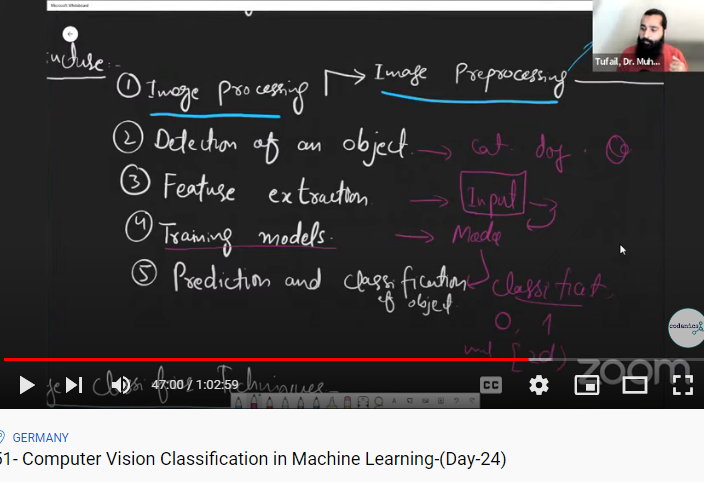 Microsoft Whiteboard
Tufail, Dr. Muh...
① Image processing → Image Preprocessing
② Detection of an object. → cat. dog.
③ Feature extraction → Input
④ Training models. →
⑤ Prediction and classification of object. classificat.
0, 1
codanics
zoom
47:00 / 1:02:59
CC
Techniques
GERMANY
51- Computer Vision Classification in Machine Learning-(Day-24)